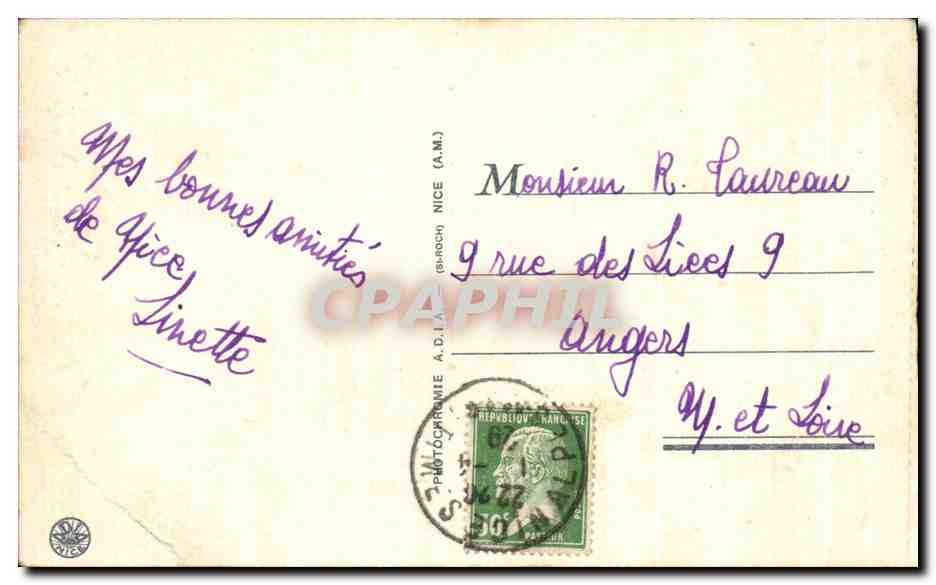 Mes bonnes amitiés
de Nice,
Linette
PHOTOCHROMIE A.D.I.A. (St-ROCH) NICE (A.M.)
Monsieur R. Taureau
9 rue des Lices 9
Angers
M. et Loire
CPAPHIL
REPUBLIQUE FRANÇAISE
ADIA
NICE